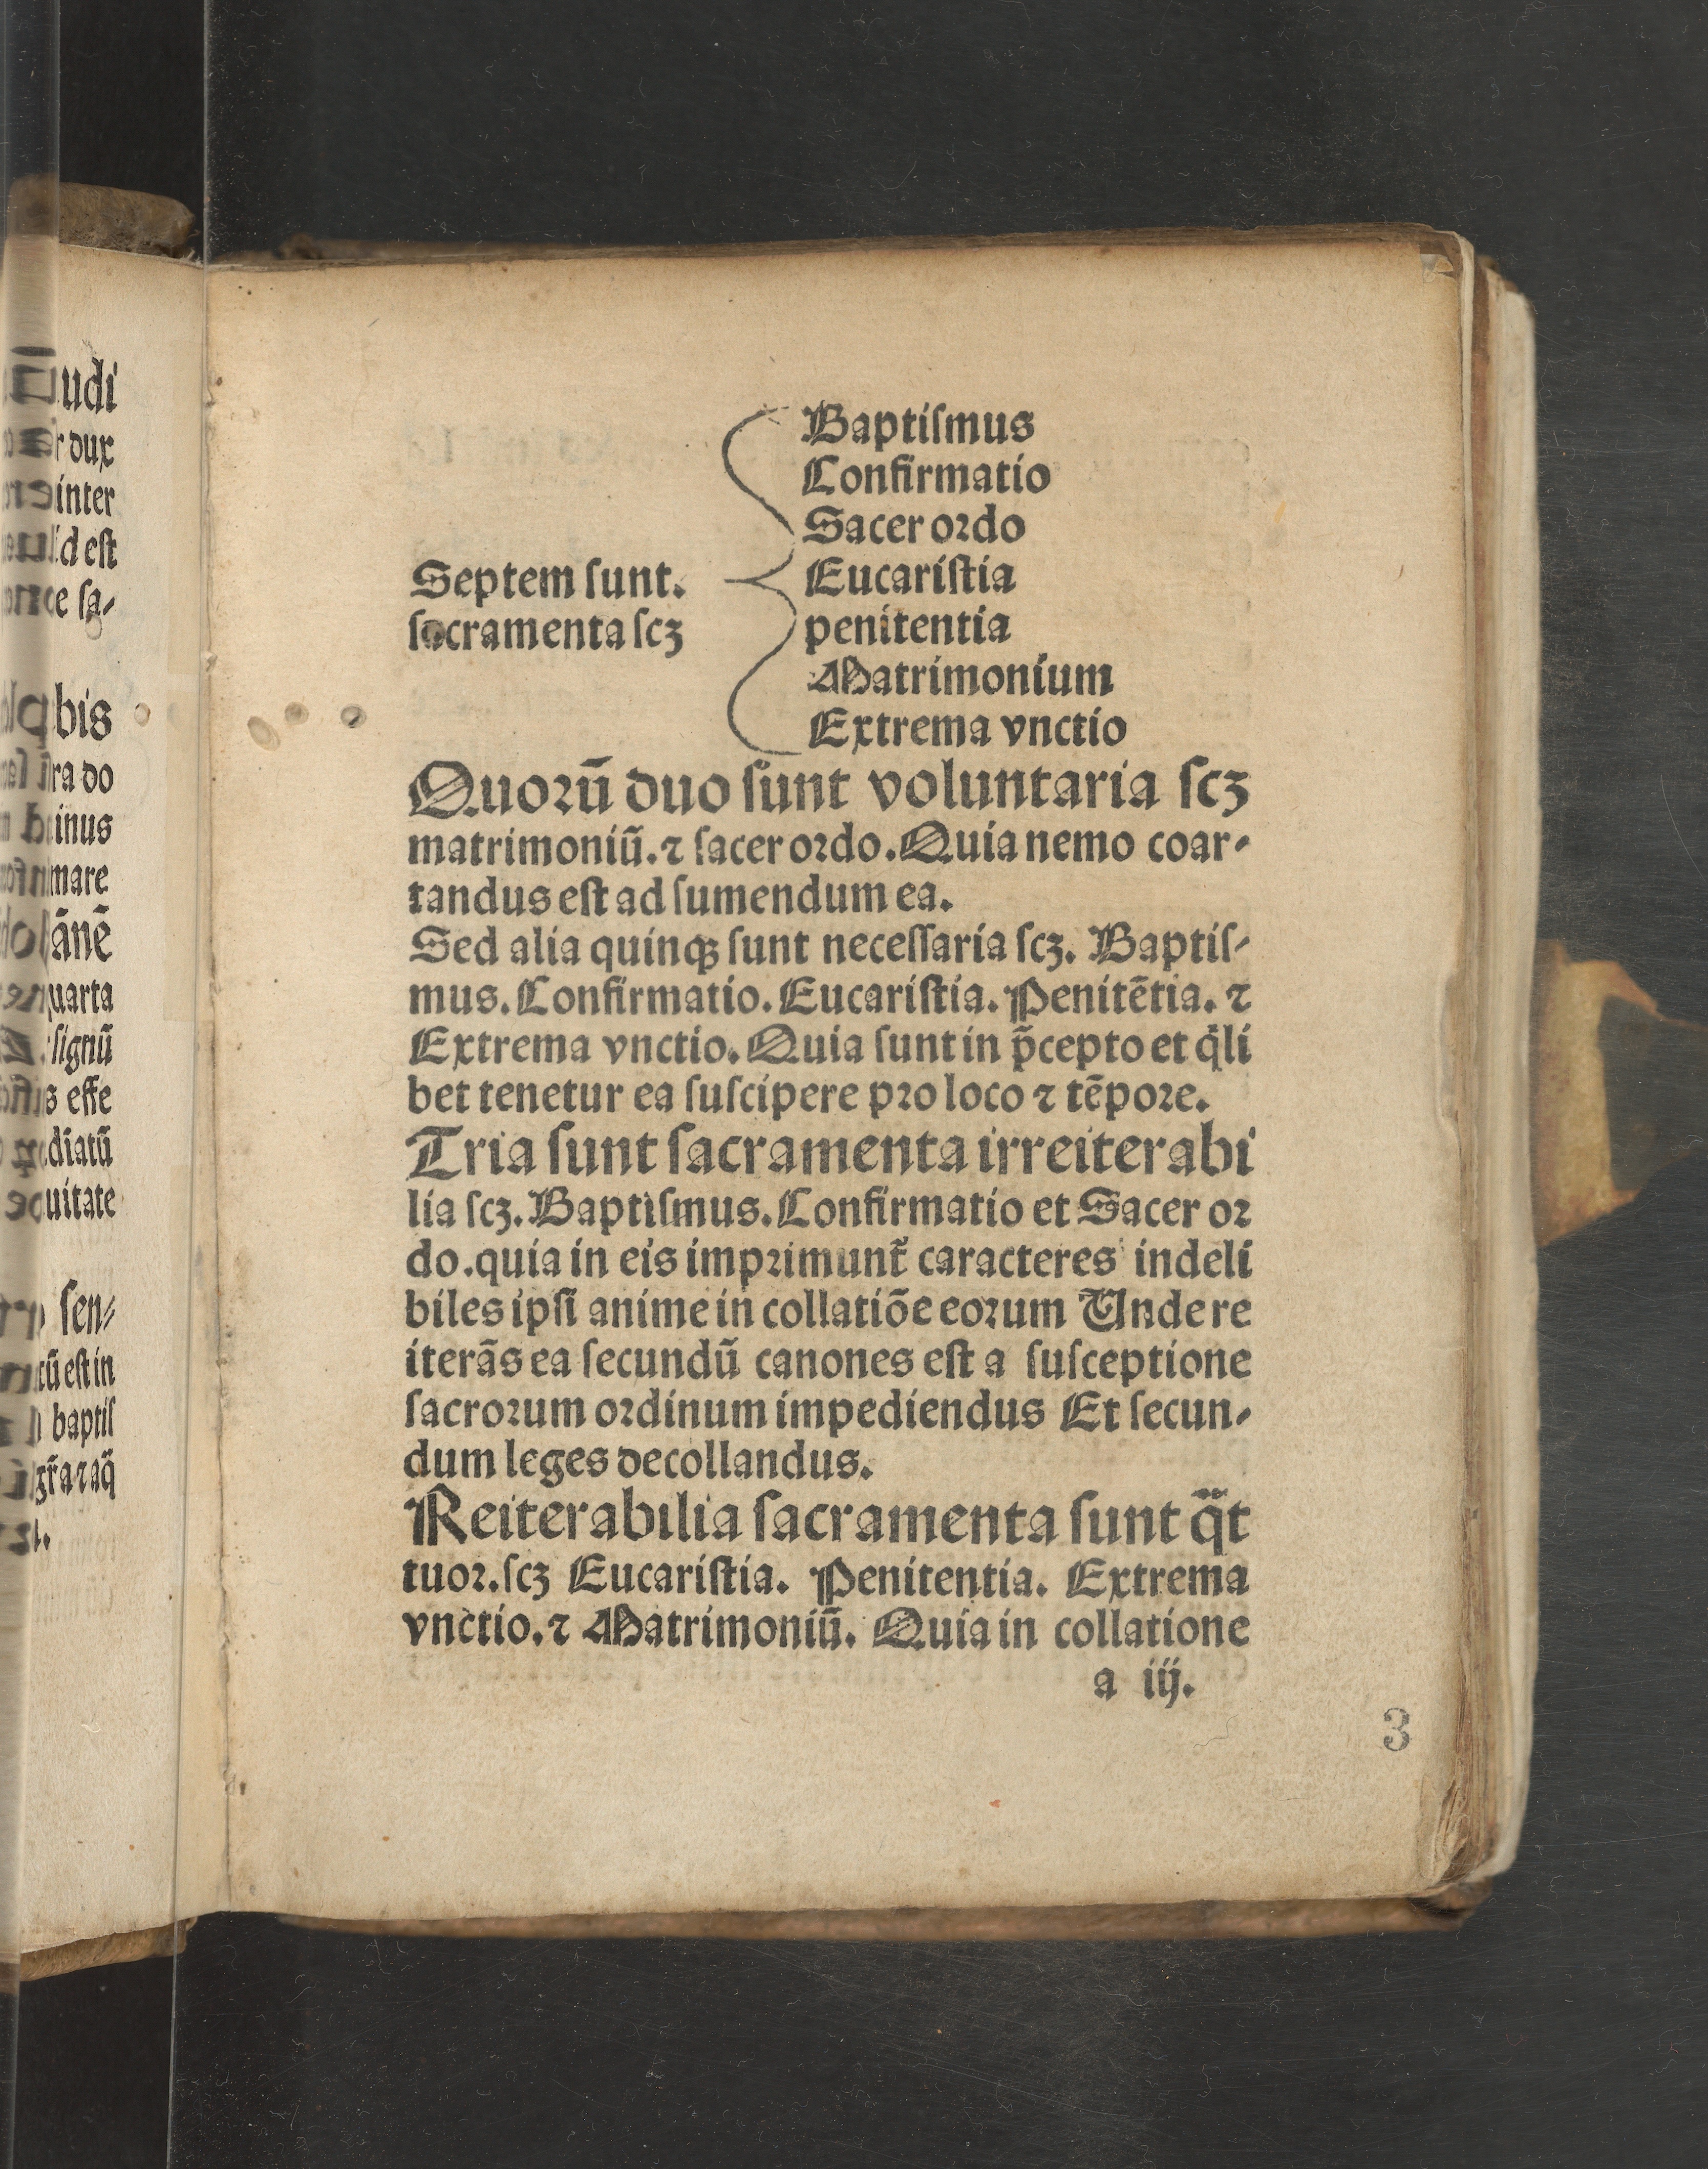 udi
dux
inter
id est
ce sa⸗
bis
ra do
inus
mare
ānē
uarta
signū
s effe
diatū
uitate
sen⸗
cū est in
baptis
gr̄a ⁊ aq̄
Baptiſmus
Confirmatio
Sacer ordo
Septem ſunt. Eucariſtia
ſacramenta ſcꝫ penitentia
Matrimonium
Extrema vnctio
Quorū duo ſunt voluntaria ſcꝫ
matrimoniū. ⁊ ſacer ordo. Quia nemo coar⸗
tandus eſt ad ſumendum ea.
Sed alia quinqꝫ ſunt neceſſaria ſcꝫ. Baptiſ⸗
mus. Confirmatio. Eucariſtia. Penitētia. ⁊
Extrema vnctio. Quia ſunt in p̄cepto et q̇li
bet tenetur ea ſuſcipere pro loco ⁊ tēpore.
Tria ſunt ſacramenta irreiterabi
lia ſcꝫ. Baptiſmus. Confirmatio et Sacer or
do. quia in eis imprimunt᷑ caracteres indeli
biles ipſi anime in collatiōe eorum Unde re
iterās ea ſecundū canones eſt a ſuſceptione
ſacrorum ordinum impediendus Et ſecun⸗
dum leges decollandus.
Reiterabilia ſacramenta ſunt qᷓt
tuor. ſcꝫ Eucariſtia. Penitentia. Extrema
vnctio. ⁊ Matrimoniū. Quia in collatione
a iij.
3